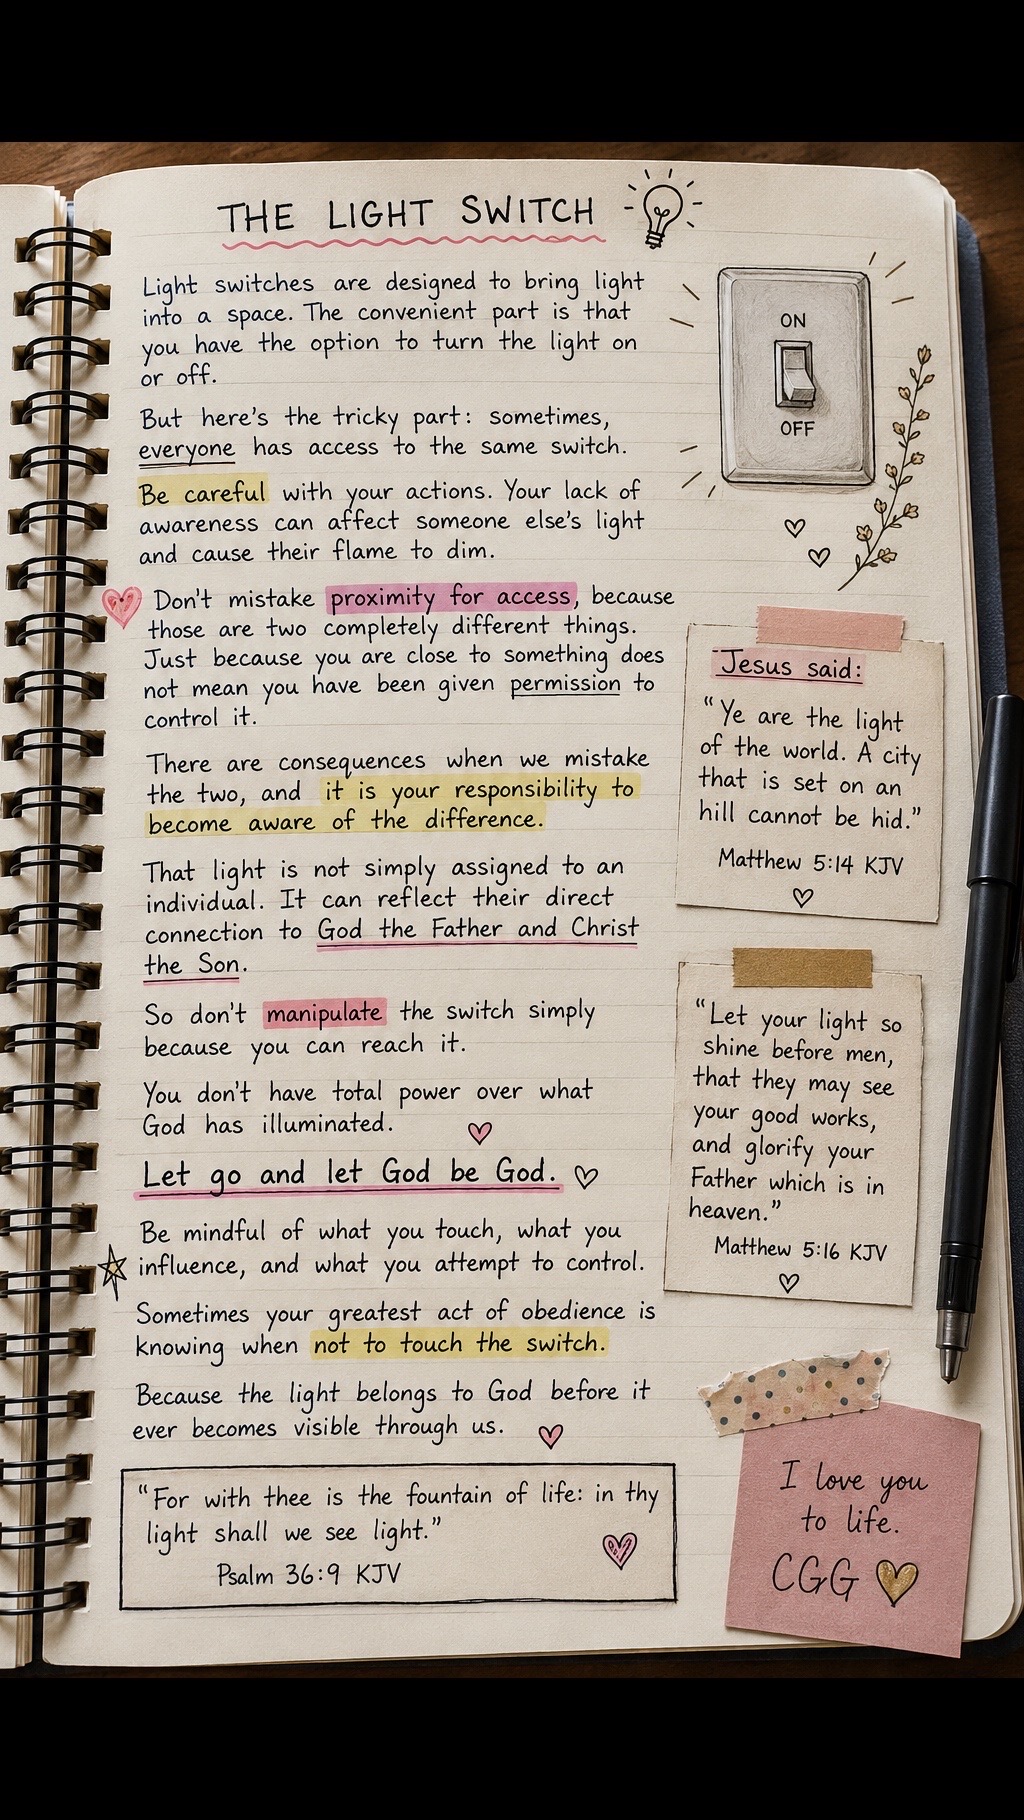 THE LIGHT SWITCH
Light switches are designed to bring light
into a space. The convenient part is that
you have the option to turn the light on
or off.
But here's the tricky part: sometimes,
everyone has access to the same switch.
Be careful with your actions. Your lack of
awareness can affect someone else's light
and cause their flame to dim.
Don't mistake proximity for access, because
those are two completely different things.
Just because you are close to something does
not mean you have been given permission to
control it.
There are consequences when we mistake
the two, and it is your responsibility to
become aware of the difference.
That light is not simply assigned to an
individual. It can reflect their direct
connection to God the Father and Christ
the Son.
So don't manipulate the switch simply
because you can reach it.
You don't have total power over what
God has illuminated.
Let go and let God be God.
Be mindful of what you touch, what you
influence, and what you attempt to control.
Sometimes your greatest act of obedience is
knowing when not to touch the switch.
Because the light belongs to God before it
ever becomes visible through us.
"For with thee is the fountain of life: in thy
light shall we see light."
Psalm 36:9 KJV
ON
OFF
Jesus said:
"Ye are the light
of the world. A city
that is set on an
hill cannot be hid."
Matthew 5:14 KJV
"Let your light so
shine before men,
that they may see
your good works,
and glorify your
Father which is in
heaven."
Matthew 5:16 KJV
I love you
to life.
CGG